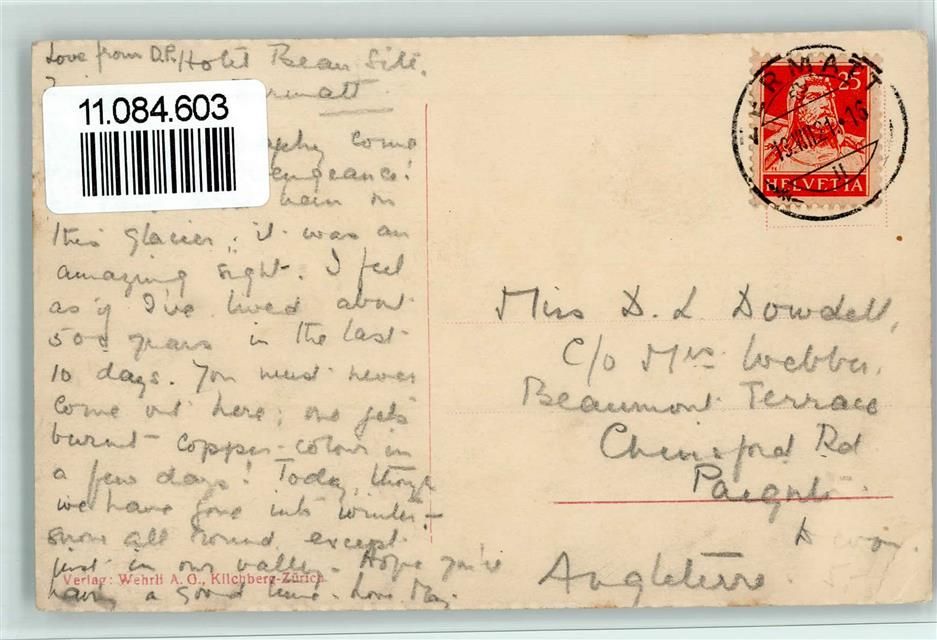 Love from D.P. Hotel Beau Site.
11.084.603
come
vengeance!
on
this glacier; it was an
amazing sight. I feel
as if I've lived about
500 years in the last
10 days. You must never
come out here; one gets
burnt copper-colour in
a few days! Today, though
we have gone into winter –
snow all round except
just in our valley. Hope you're
having a good time. Love May.
Verlag: Wehrli A. G., Kilchberg-Zürich
ZERMATT
13.VIII.21.-16
25
HELVETIA
Miss D. L Dowdell,
C/o Mrs Webber,
Beaumont Terrace
Rd
Paignton.
Devon.
Angleterre.